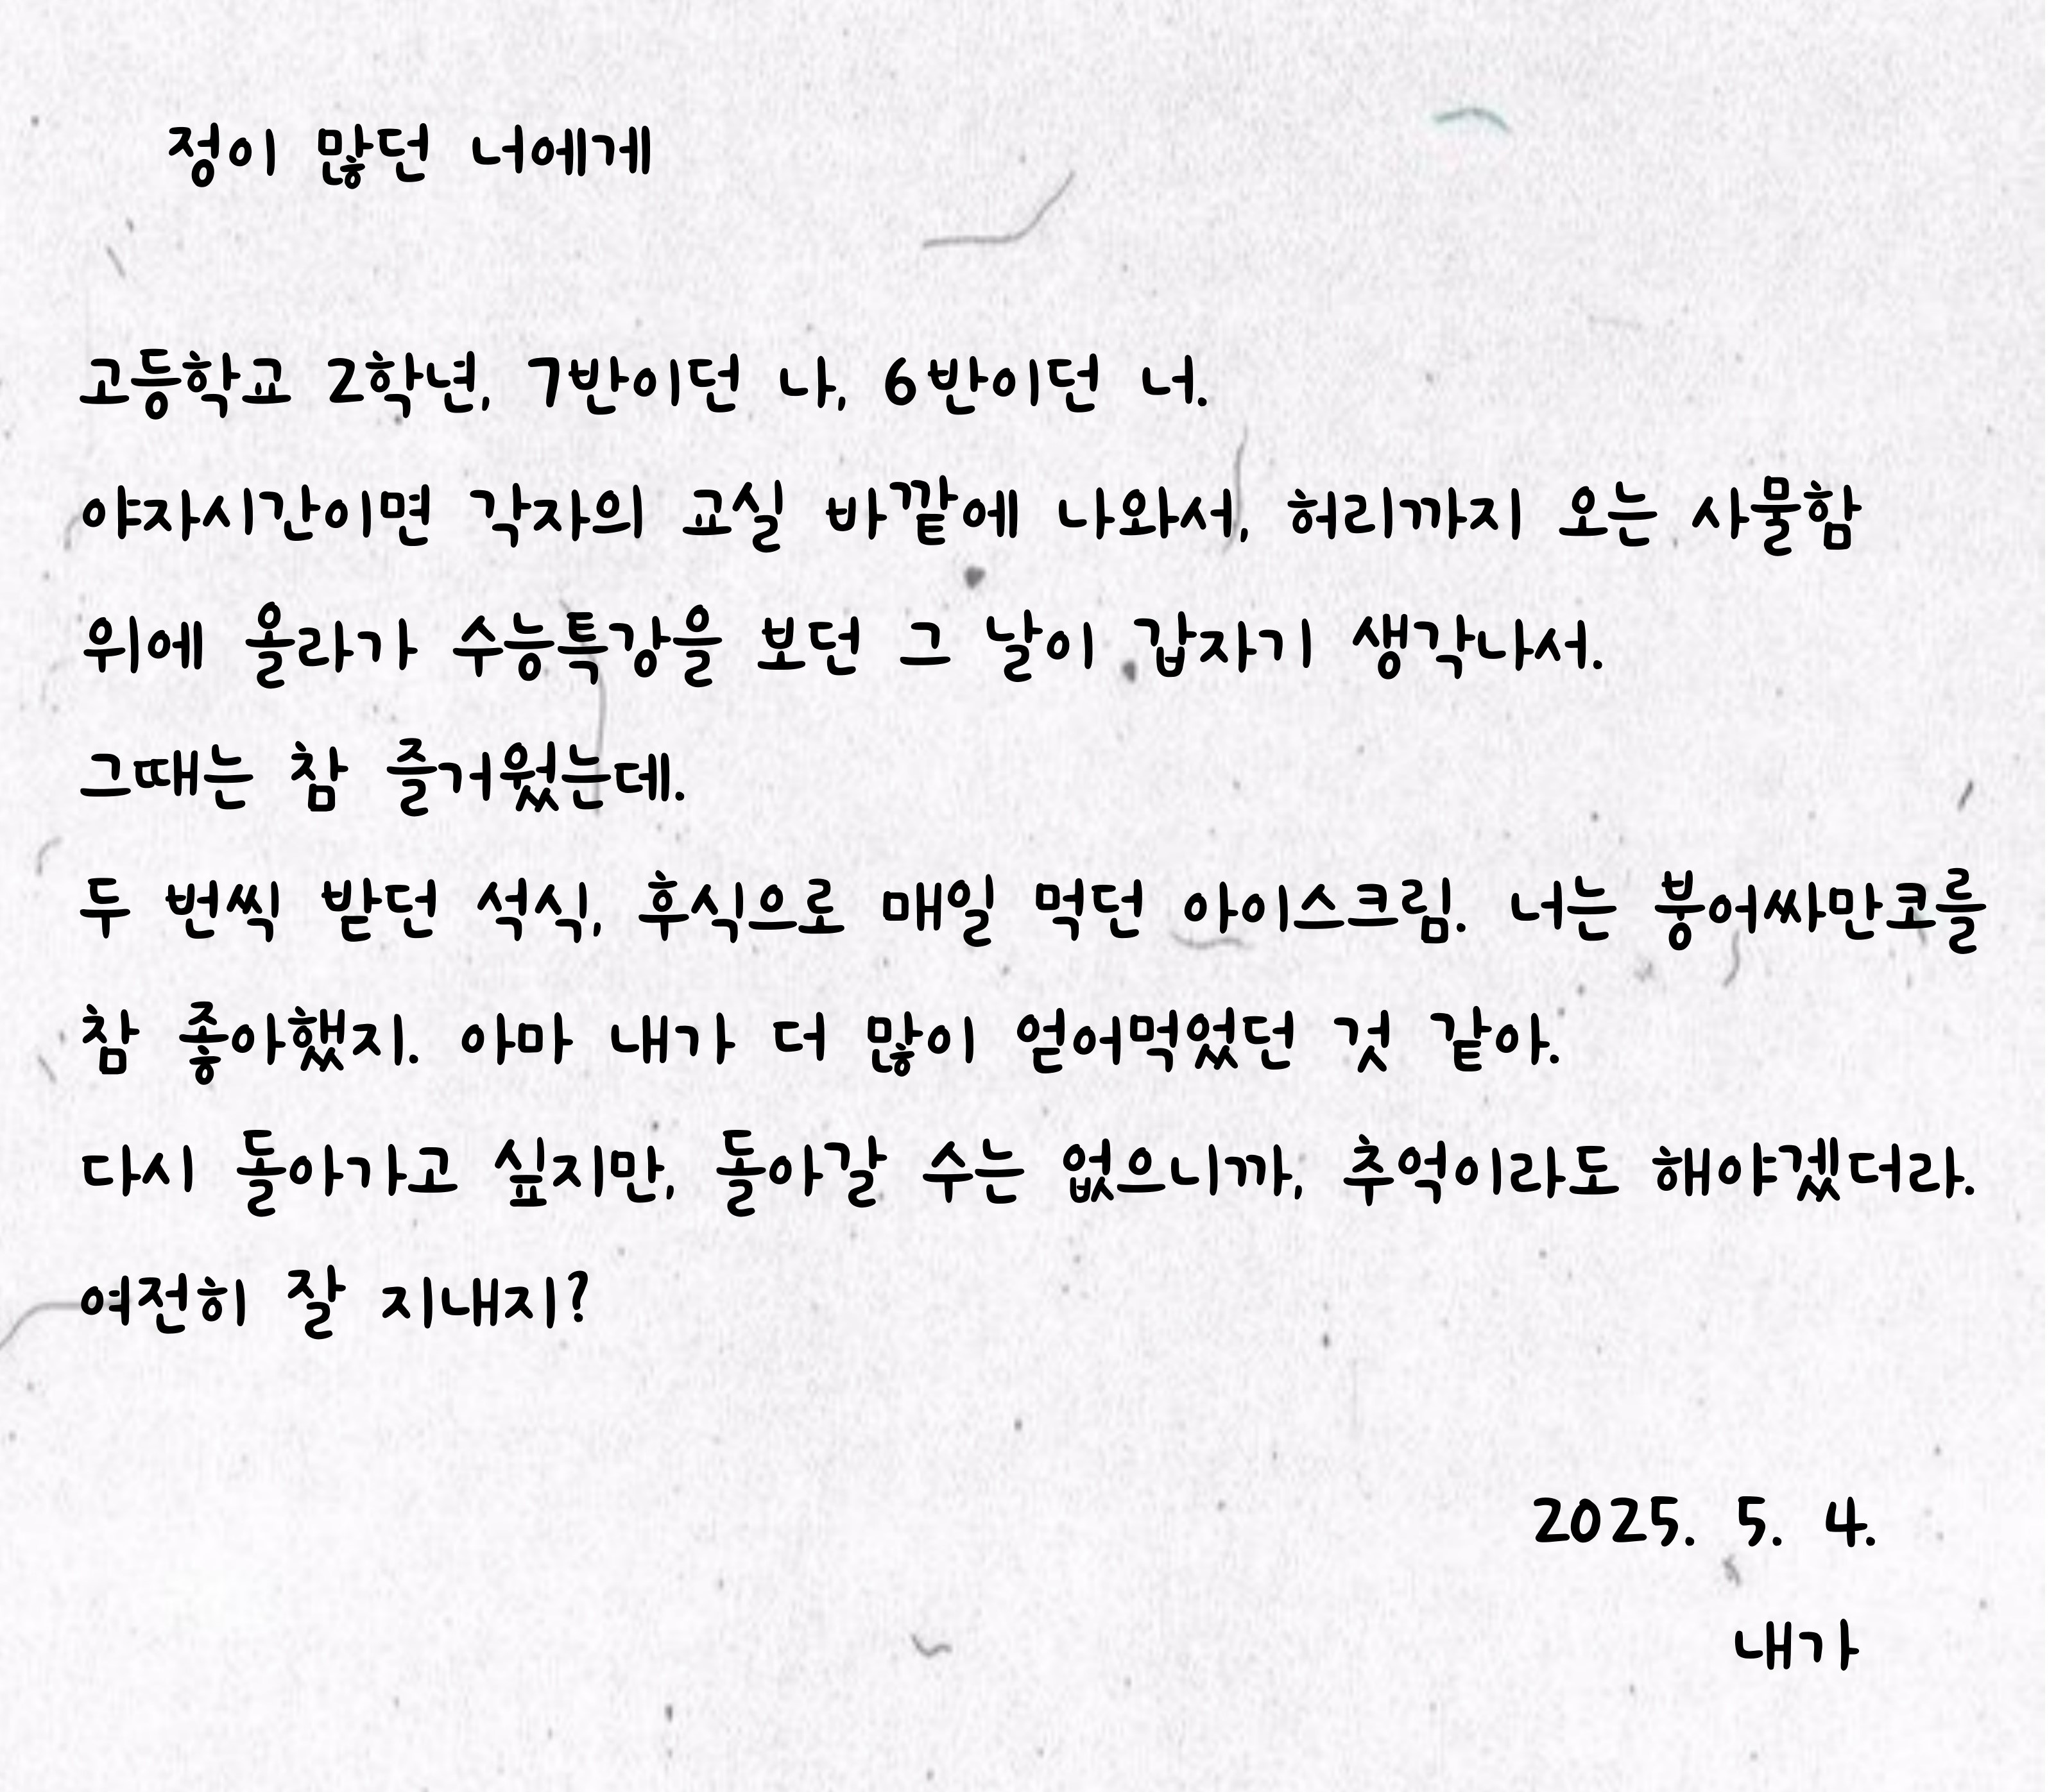 정이 많던 너에게
고등학교 2학년, 7반이던 나, 6반이던 너.
야자시간이면 각자의 교실 바깥에 나와서, 허리까지 오는 사물함
위에 올라가 수능특강을 보던 그 날이 갑자기 생각나서.
그때는 참 즐거웠는데.
두 번씩 받던 석식, 후식으로 매일 먹던 아이스크림. 너는 붕어싸만코를
참 좋아했지. 아마 내가 더 많이 얻어먹었던 것 같아.
다시 돌아가고 싶지만, 돌아갈 수는 없으니까, 추억이라도 해야겠더라.
여전히 잘 지내지?
2025. 5. 4.
내가